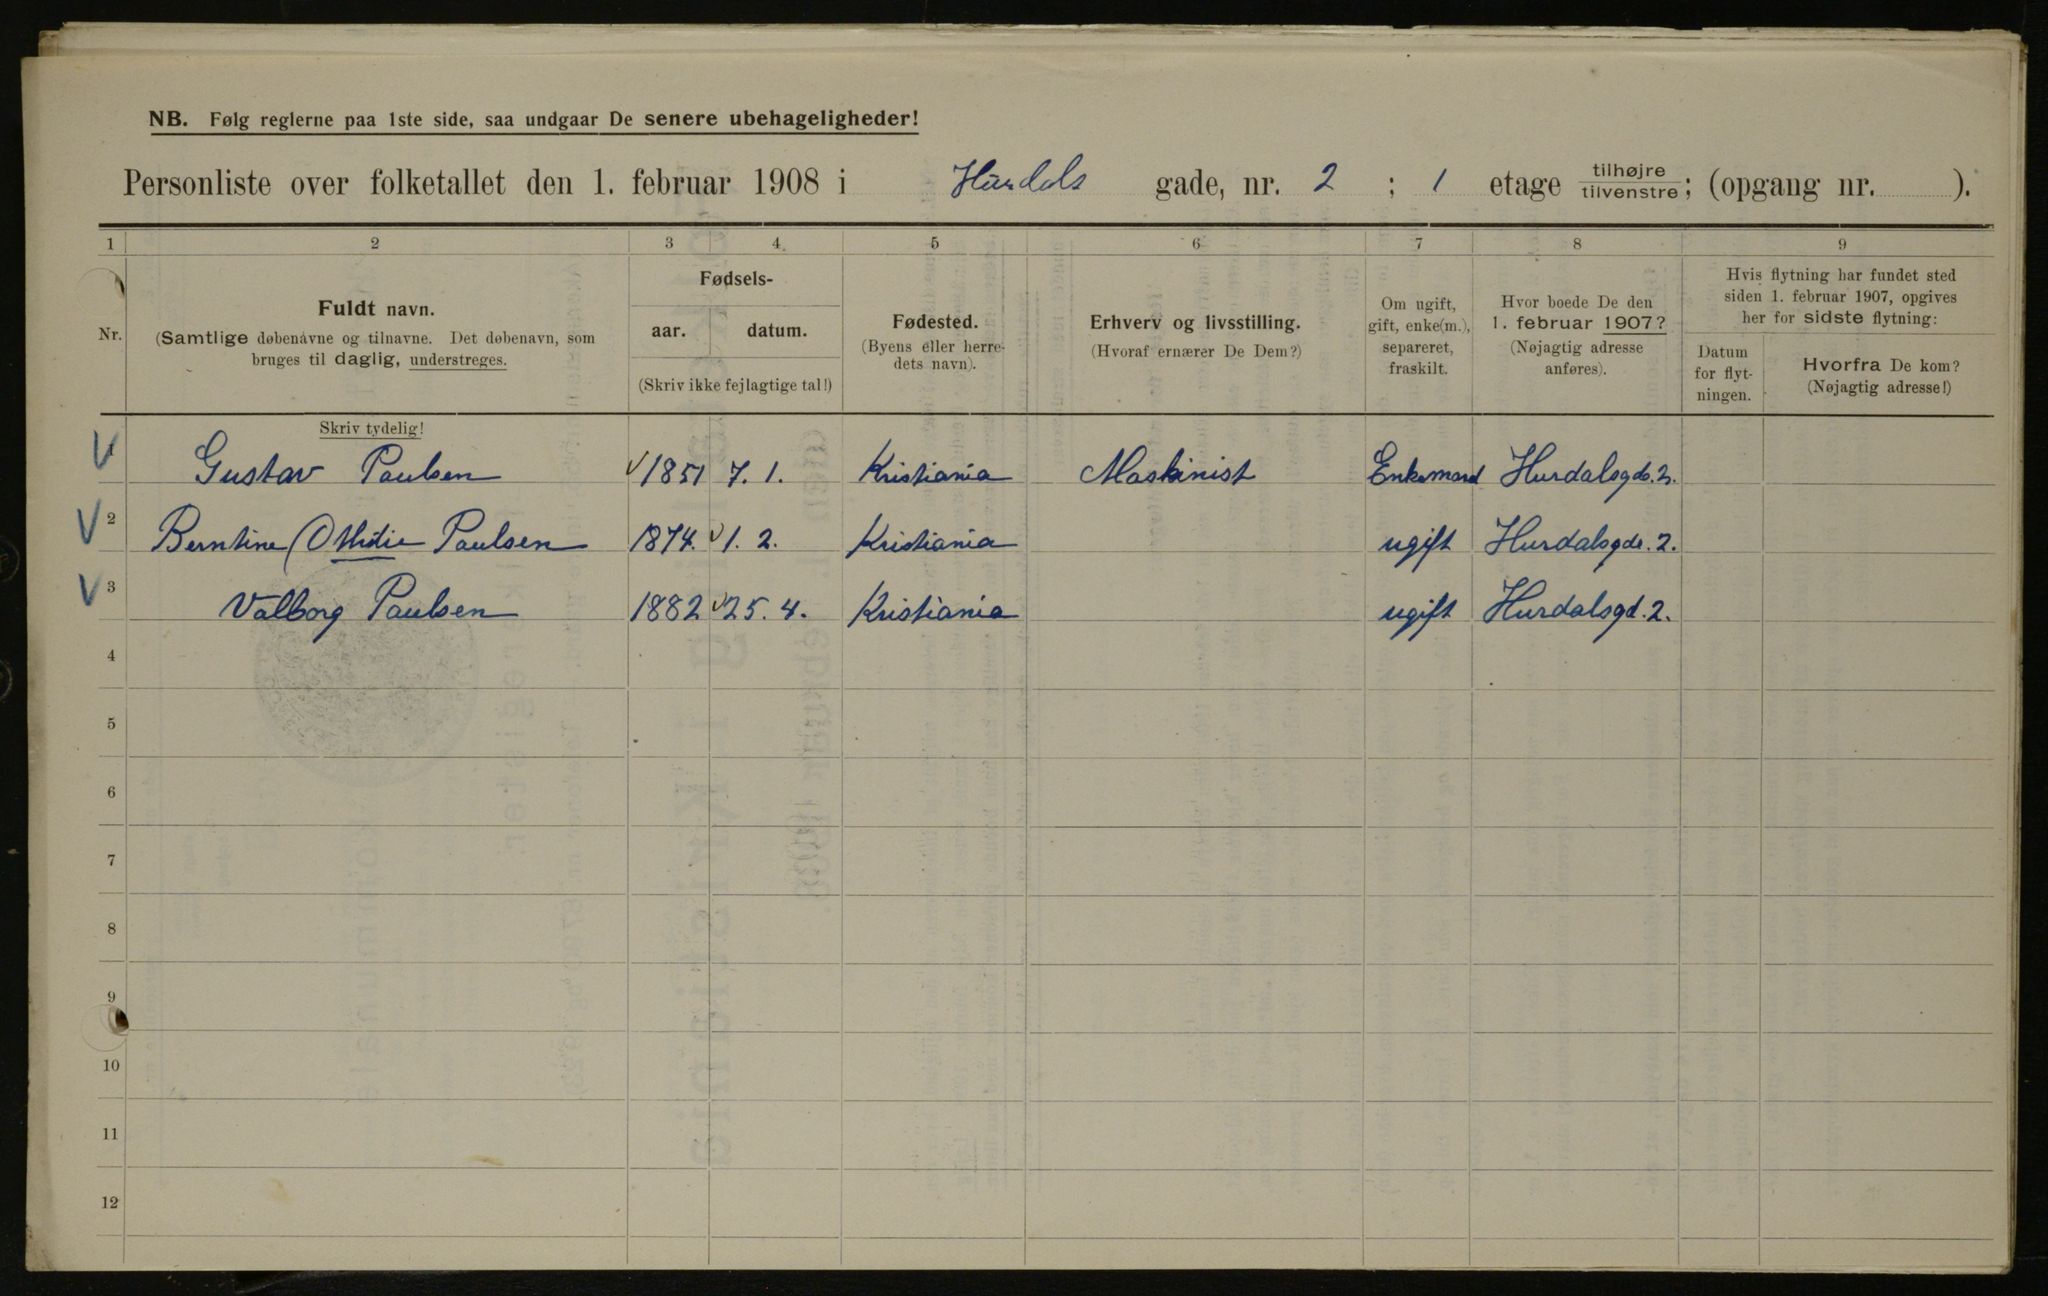 NB. Følg reglerne paa 1ste side, saa undgaar De senere ubehageligheder!
Personliste over folketallet den 1. februar 1908 i Hurdals gade, nr. 2 ; 1 etage tilhøjre tilvenstre; (opgang nr. ).
1 2 3 4 5 6 7 8 9
Nr.
Fuldt navn.
(Samtlige døbenavne og tilnavne. Det døbenavn, som
bruges til daglig, understreges.
Skriv tydelig!
Fødsels-
aar. datum.
(Skriv ikke fejlagtige tal!)
Fødested.
(Byens eller herre-
dets navn).
Erhverv og livsstilling.
(Hvoraf ernærer De Dem?)
Om ugift,
gift, enke(m.),
separeret,
fraskilt.
Hvor boede De den
1. februar 1907?
(Nøjagtig adresse
anføres).
Hvis flytning har fundet sted
siden 1. februar 1907, opgives
her for sidste flytning:
Datum
for flyt-
ningen.
Hvorfra De kom?
(Nøjagtig adresse!)
1 Gustav Paulsen 1851 7. 1. Kristiania Maskinist Enkemand Hurdalsgd. 2.
2 Berntine Othilie Paulsen 1874. 1. 2. Kristiania ugift Hurdalsgd. 2.
3 Valborg Paulsen 1882 25. 4. Kristiania ugift Hurdalsgd. 2.
4
5
6
7
8
9
10
11
12